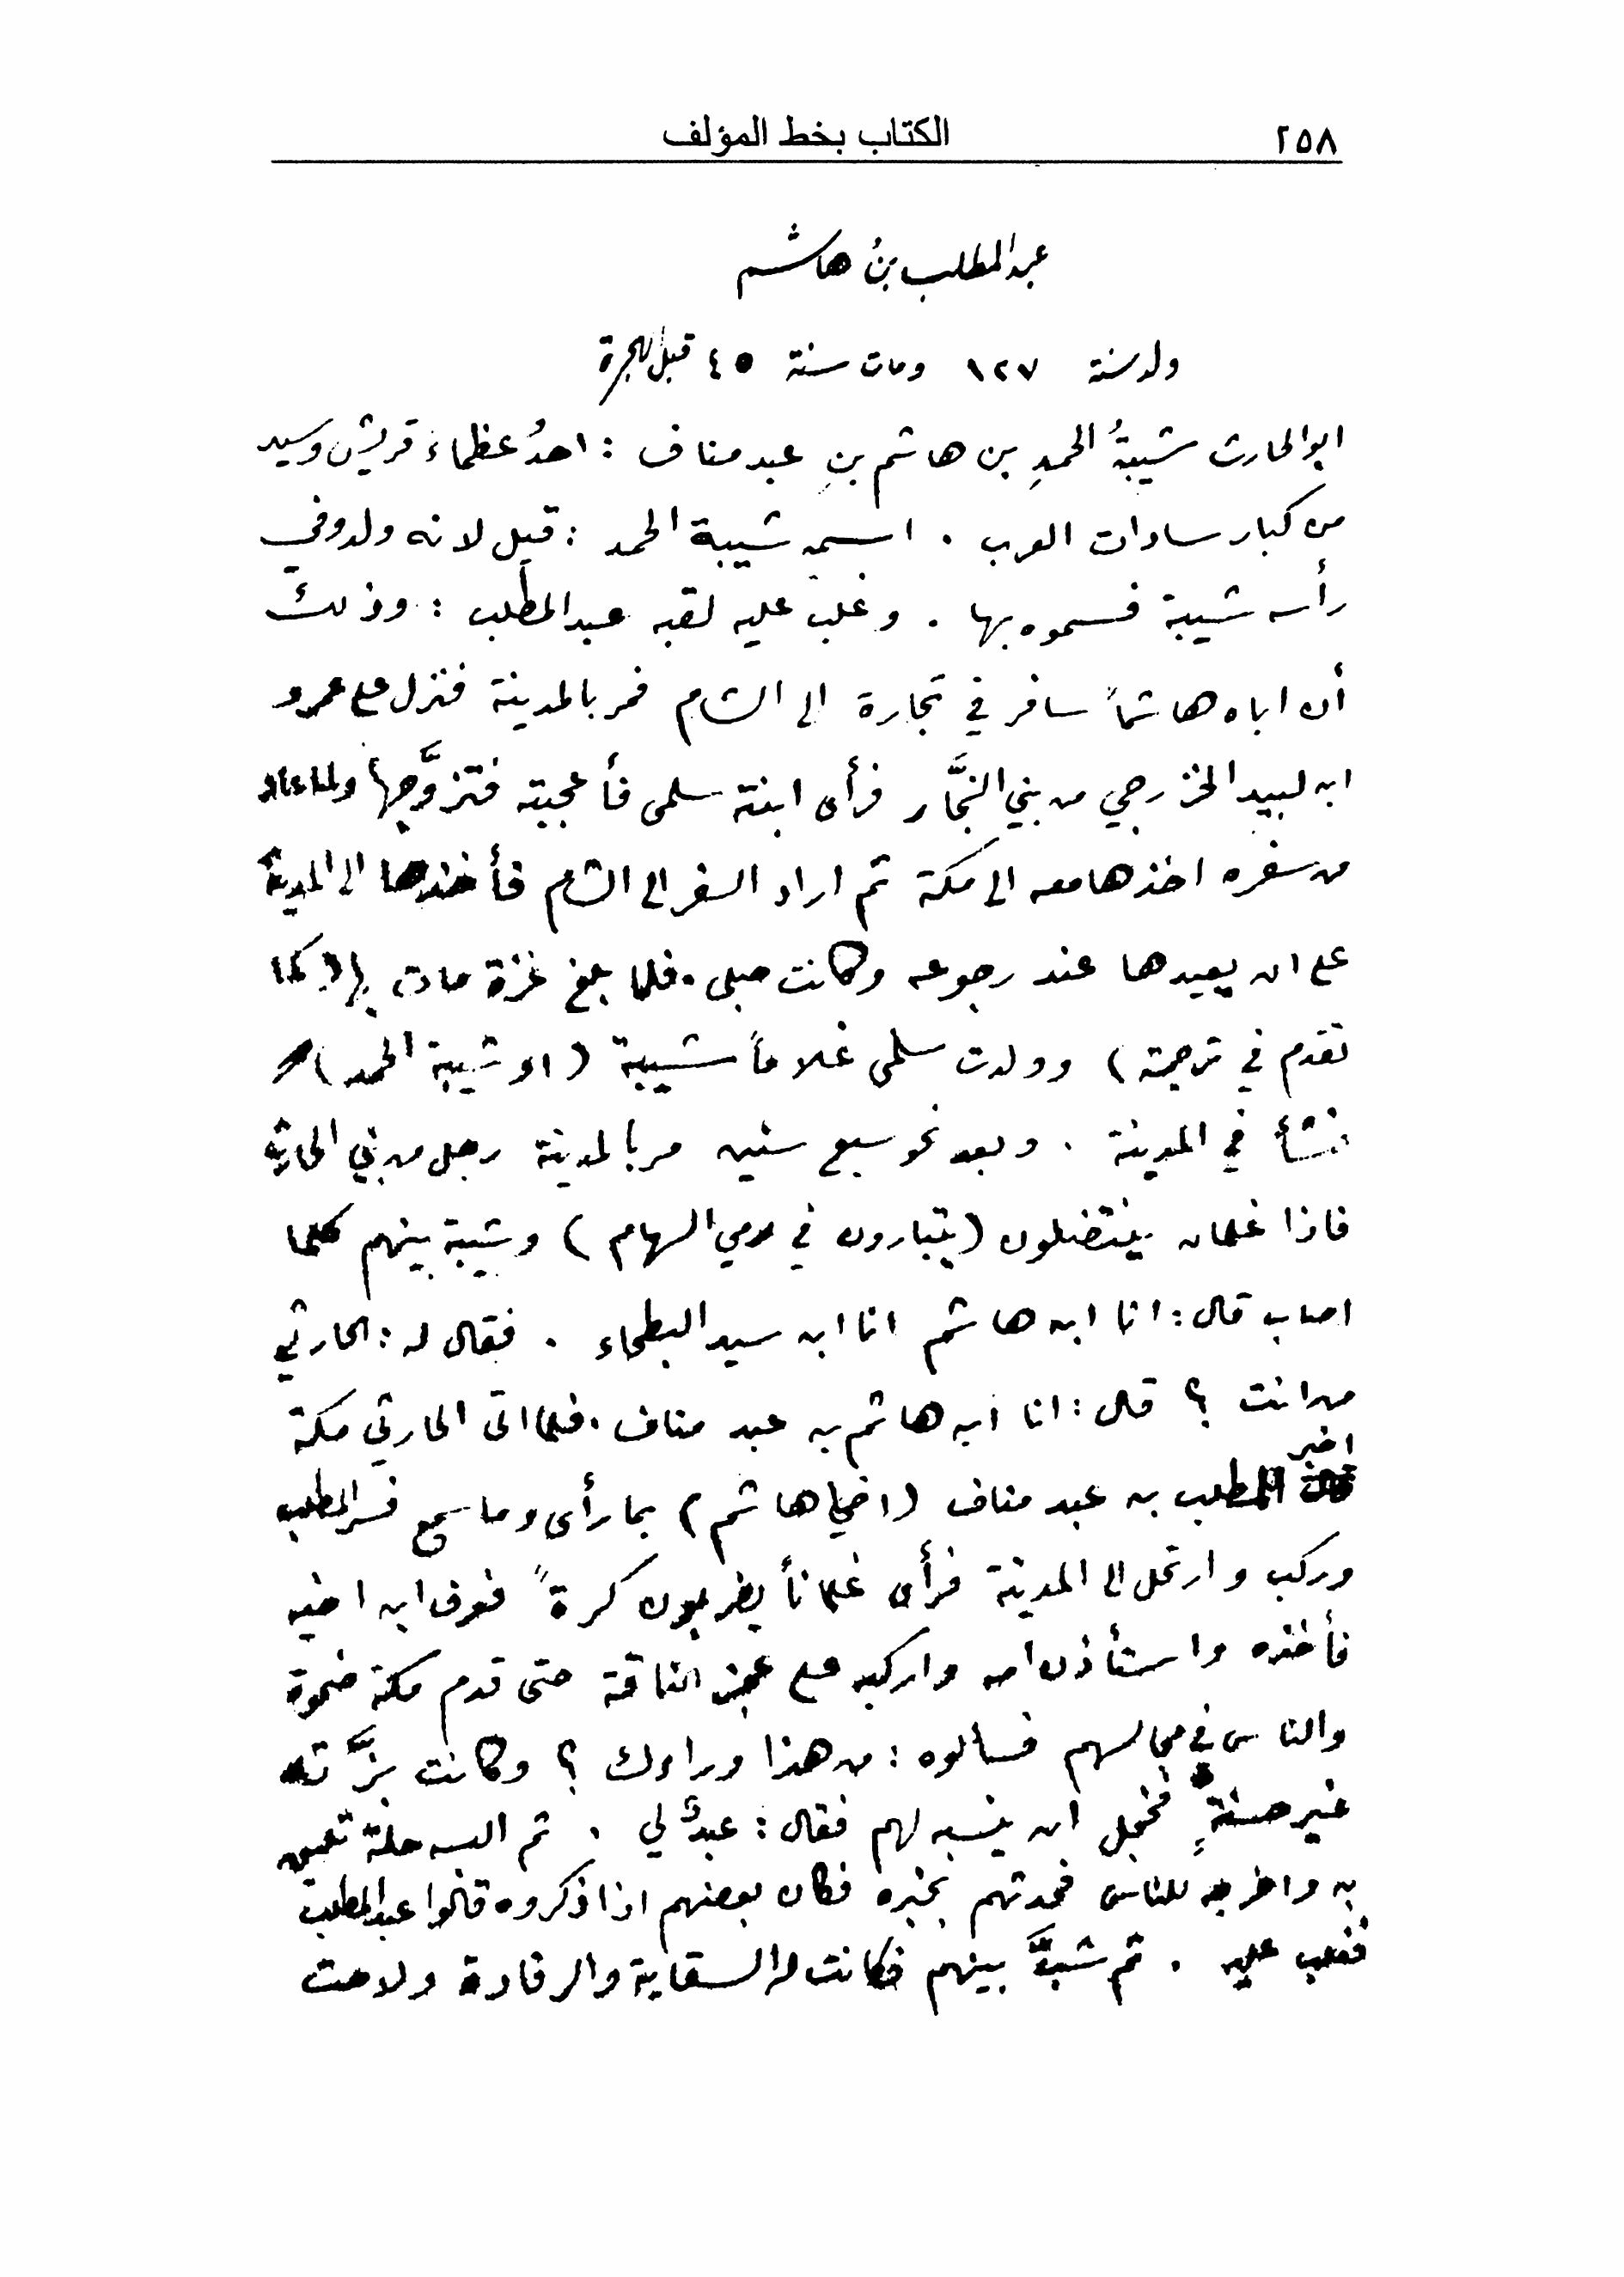 ٢٥٨
الكتاب بخط المؤلف
عبد المطلب بنُ هاشم
ولد سنة ١٢٧ ومات سنة ٤٥ قبل الهجرة
ابو الحارث شيبةُ الحمدِ بن هاشم بنِ عبد مناف : احدُ عظماء قريش وسيد
من كبار سادات العرب . اسمه شيبة الحمد : قيل لانه ولد وفي
رأسه شيبة فسموه بها . وغلب عليه لقبه عبد المطلب : وذلك
أن اباه هاشماً سافر في تجارة الى الشام فمر بالمدينة فنزل على عمرو
ابن لبيد الخزرجي من بني النجَّار فرأى ابنته سلمى فأعجبته فتزوَّجها ولما عاد
من سفره اخذها معه الى مكة ثم اراد السفر الى الشام فأخذها الى المدينة
على ان يعيدها عند رجوعه وكانت حبلى . فلما بلغ غزة مات بها ( كما
تقدم في ترجمته ) وولدت سلمى غلاماً شيبة ( او شيبة الحمد )
فنشأ في المدينة . وبعد نحو سبع سنين مر بالمدينة رجل من بني الحارث
فاذا غلمان ينتضلون ( يتبارون في رمي السهام ) وشيبة بينهم كلما
اصاب قال : انا ابن هاشم انا ابن سيد البطحاء . فقال له : الحارثي
من انت ؟ قال : انا ابن هاشم بن عبد مناف . فلما اتى الحارثي مكة
اخبر
المطلب بن عبد مناف ( اخي هاشم ) بما رأى وما سمع فسر المطلب
وركب وارتحل الى المدينة فرأى غلماناً يضربون كرةً فعرف ابن اخيه
فأخذه واستأذن امه واركبه على عجز الناقة حتى قدم مكة ضحوة
والناس في مجالسهم فسألوه : من هذا وراءك ؟ وكانت بزَّته
غير حسنةٍ فخجل ان ينسبه لهم فقال : عبدٌ لي . ثم البسه حلة تحسن
به واخرجه للناس فحدثهم بخبره فكان بعضهم اذا ذكروه قالوا عبد المطلب
فغلب عليه . ثم شبَّ بينهم فكانت له السقاية والرفادة ولاحت